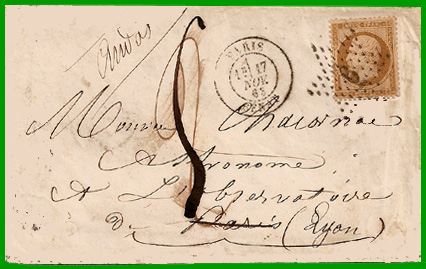 PARIS
17
NOV.
63
Monsieur Chacornac
Astronome
A L'Observatoire
de Paris (Lyon)